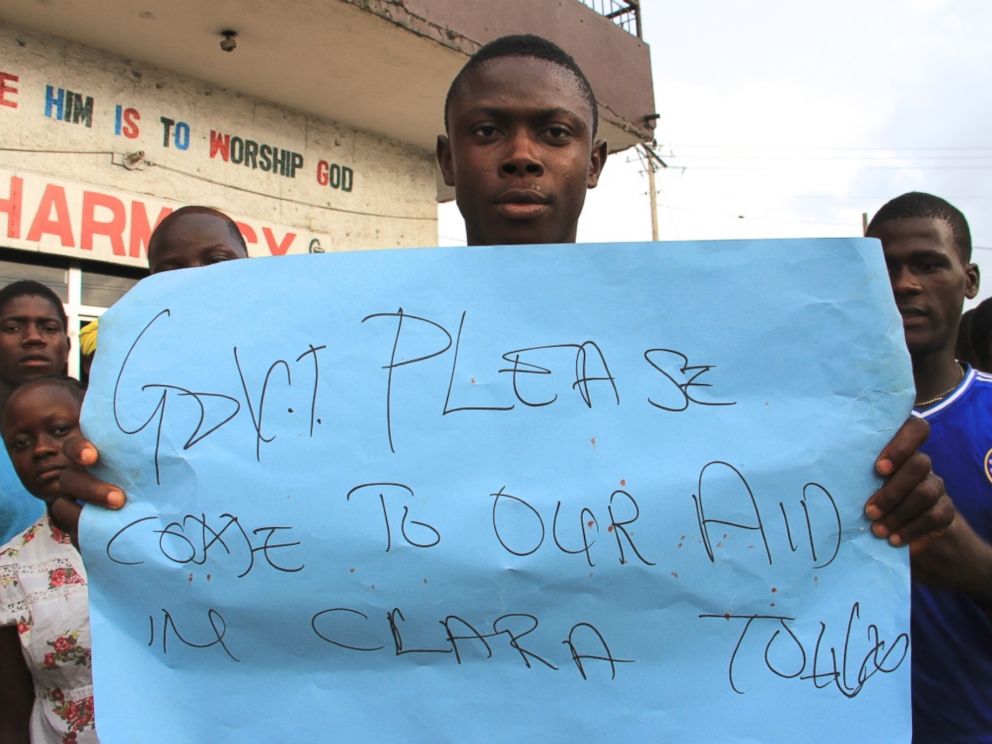 E HIM IS TO WORSHIP GOD
HARMACY
GOVT. PLEASE
COME TO OUR AID
IN CLARA